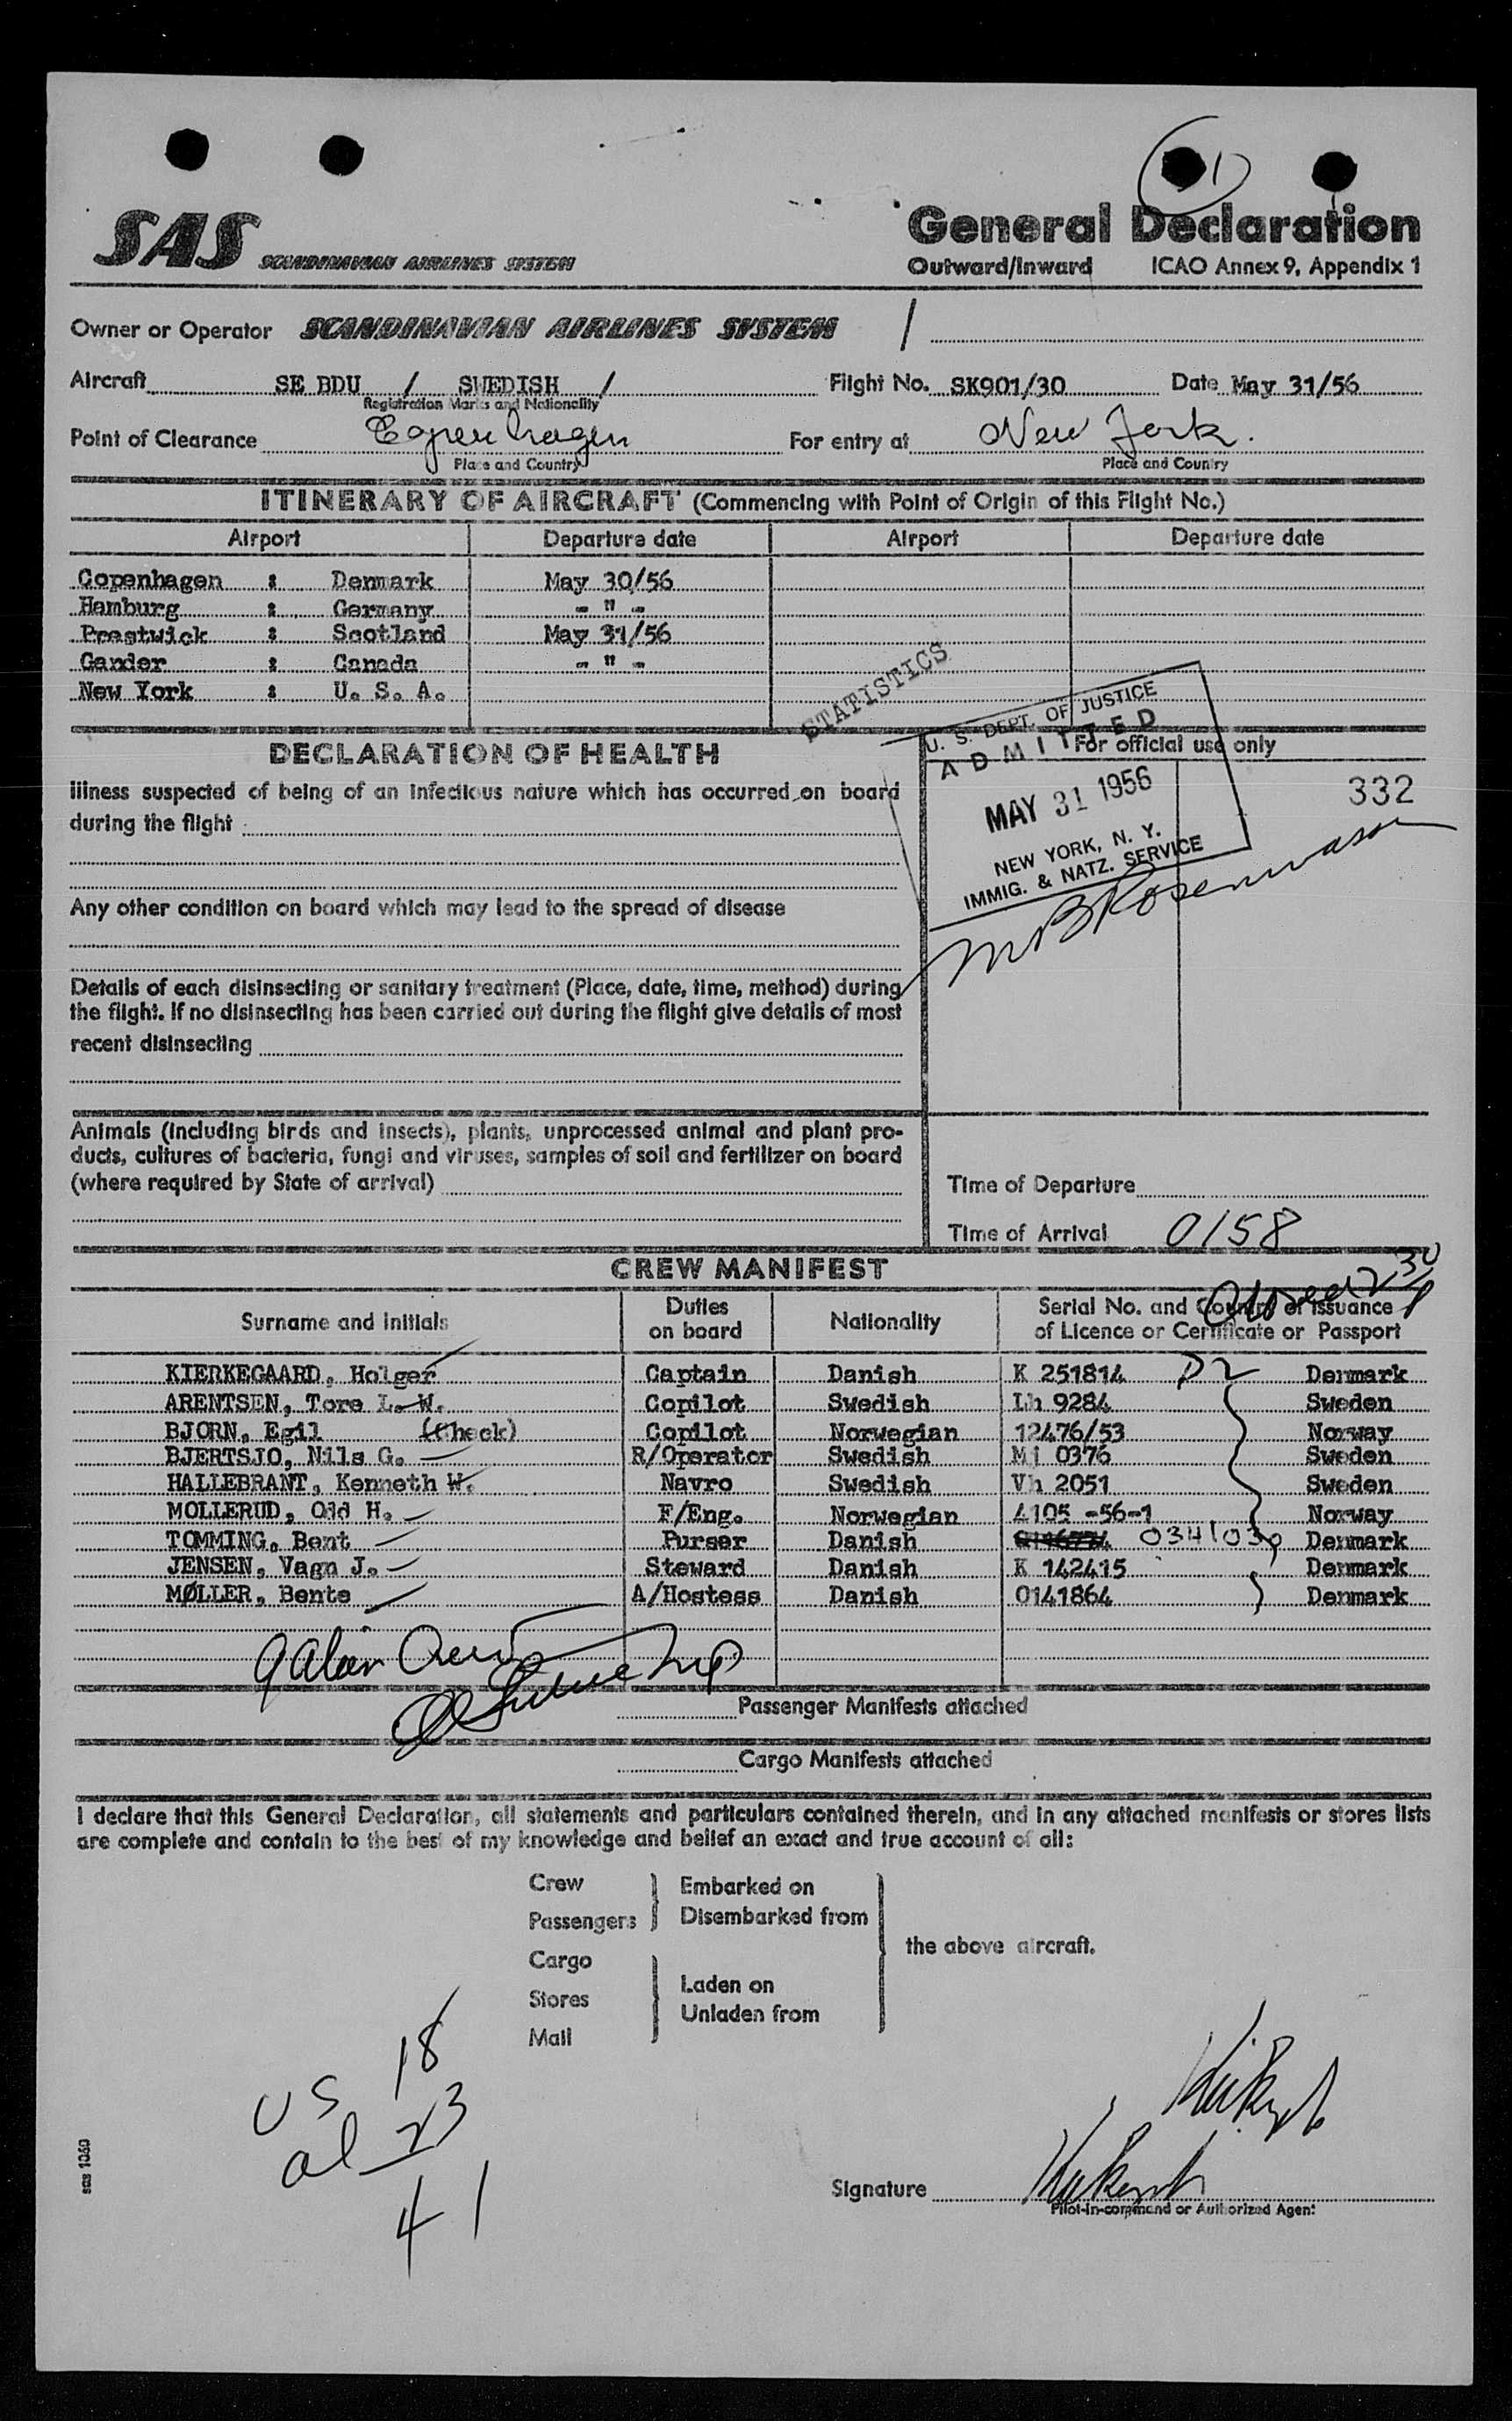 SAS SCANDINAVIAN AIRLINES SYSTEM
General Declaration
Outward/Inward ICAO Annex 9, Appendix 1
Owner or Operator SCANDINAVIAN AIRLINES SYSTEM /
Aircraft SE BDU / SWEDISH / Flight No. SK901/30 Date May 31/56
Registration Marks and Nationality
Point of Clearance Copenhagen For entry at New York.
Place and Country Place and Country
ITINERARY OF AIRCRAFT (Commencing with Point of Origin of this Flight No.)
Airport Departure date Airport Departure date
Copenhagen : Denmark May 30/56
Hamburg : Germany - " -
Prestwick : Scotland May 31/56
Gander : Canada - " -
New York : U. S. A.
STATISTICS
U. S. DEPT. OF JUSTICE
ADMITTED
MAY 31 1956
NEW YORK, N. Y.
IMMIG. & NATZ. SERVICE
For official use only
332
MB Rosenwasser
DECLARATION OF HEALTH
Illness suspected of being of an infectious nature which has occurred on board
during the flight
Any other condition on board which may lead to the spread of disease
Details of each disinsecting or sanitary treatment (Place, date, time, method) during
the flight. If no disinsecting has been carried out during the flight give details of most
recent disinsecting
Animals (including birds and insects), plants, unprocessed animal and plant pro-
ducts, cultures of bacteria, fungi and viruses, samples of soil and fertilizer on board
(where required by State of arrival)
Time of Departure
Time of Arrival 0158
CREW MANIFEST
Surname and initials Duties on board Nationality Serial No. and Country of Issuance of Licence or Certificate or Passport
KIERKEGAARD, Holger Captain Danish K 251814 D2 Denmark
ARENTSEN, Tore L. W. Copilot Swedish Lh 9284 Sweden
BJORN, Egil (Check) Copilot Norwegian 12476/53 Norway
BJERTSJO, Nils G. R/Operator Swedish Mj 0376 Sweden
HALLEBRANT, Kenneth W. Navro Swedish Vh 2051 Sweden
MOLLERUD, Odd H. F/Eng. Norwegian 4105 -56-1 Norway
TOMMING, Bent Purser Danish 0341030 Denmark
JENSEN, Vagn J. Steward Danish K 142415 Denmark
MØLLER, Bente A/Hostess Danish 0141864 Denmark
Passenger Manifests attached
Cargo Manifests attached
I declare that this General Declaration, all statements and particulars contained therein, and in any attached manifests or stores lists
are complete and contain to the best of my knowledge and belief an exact and true account of all:
Crew
Passengers
Embarked on
Disembarked from
Cargo
Stores
Mail
Laden on
Unladen from
the above aircraft.
US 18
al 23
41
Signature
Pilot-in-command or Authorized Agent
sas 1060